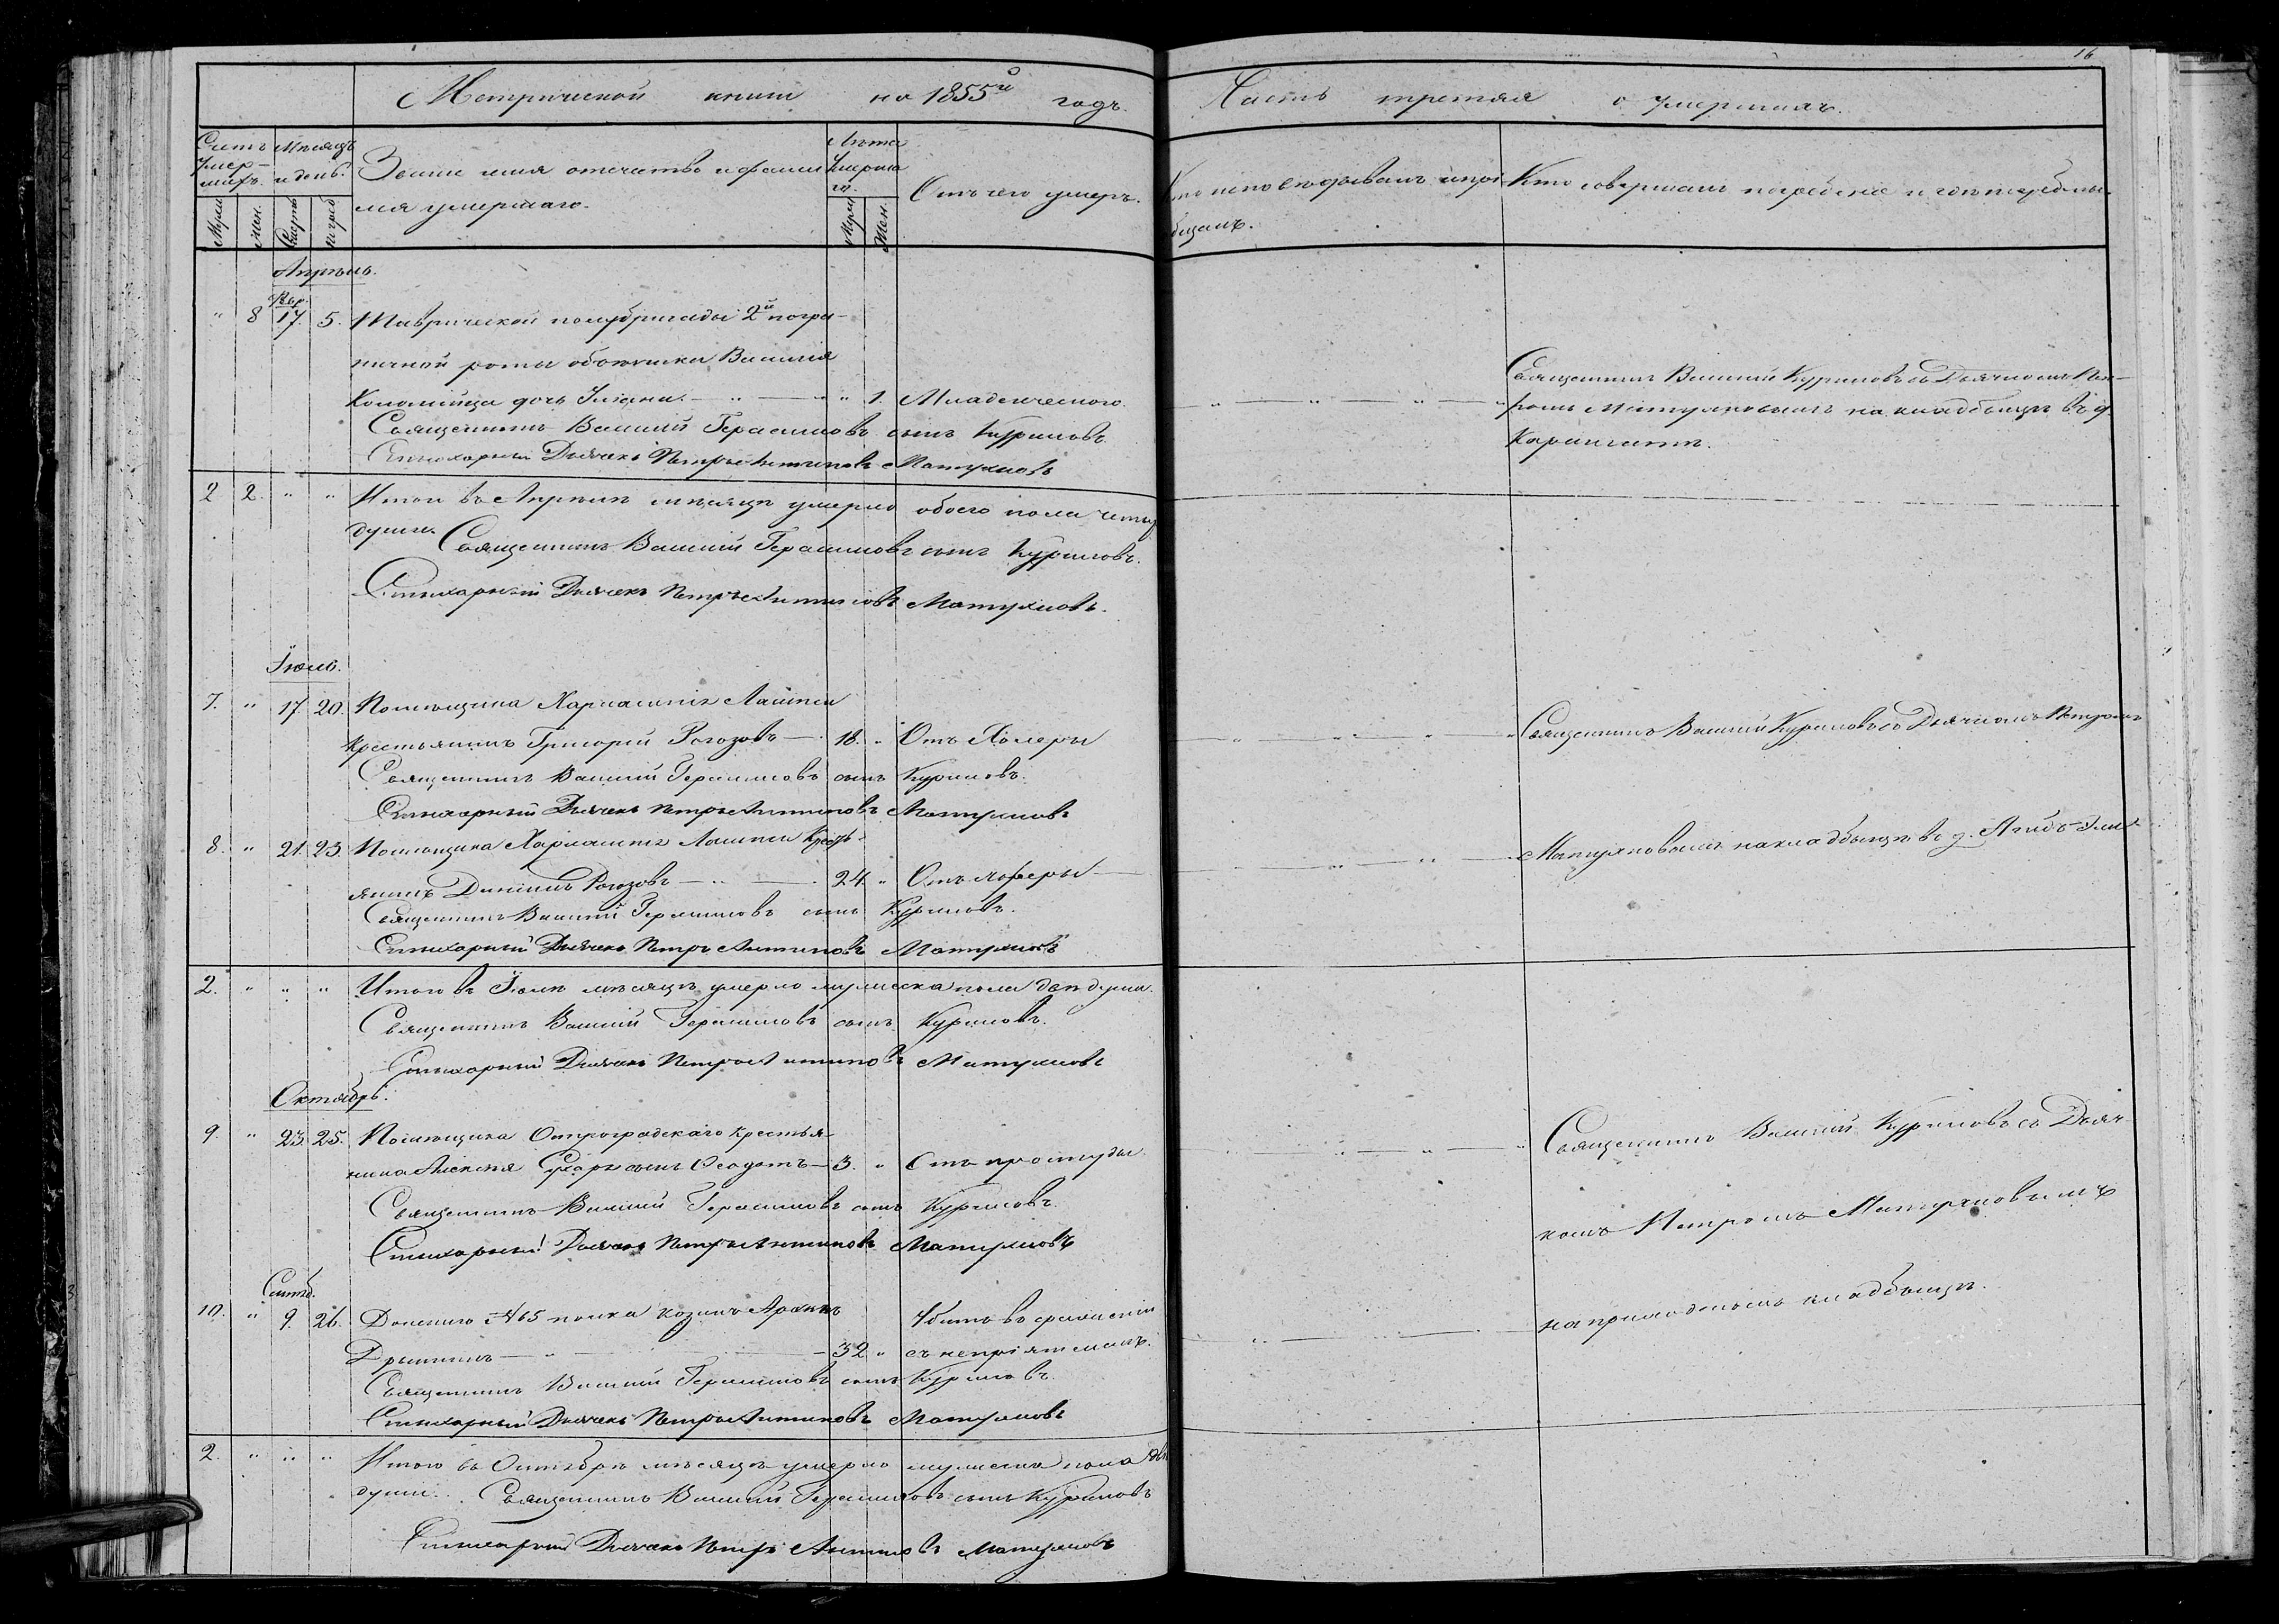 16
Метрической книги на 1855й годъ.
Часть третяя о умершихъ.
Счетъ умер-шихъ.
Мѣсяцъ и день.
Званiе имя отечество и фами-
лiя умершаго.
Лѣта умерша
го.
Отъ чего умеръ.
Кто исповѣдывалъ и прiо-
бщалъ.
Кто совершалъ погребенiе и гдѣ погребены.
Муж. Жен. Смерть погреб Муж. Жен.
Апрѣль.
Февр.
" 8 17. 5. Таврической полубригады 2й погра-
ничной роты объѣздчика Василiя
Коломiйца дочь Улiана " 1. Младенческого.
Священникъ Василiй Герасимовъ сынъ Куриловъ
Стихарный Дьячекъ Петръ Антиповъ Матухновъ
Священникъ Василiй Куриловъ съ Дьячкомъ Пет-
ромъ Матухновымъ на кладбищѣ въ д.
2 2. " " Итого въ Апрѣлѣ мѣсяцѣ умерло обоего пола четы
души. Священникъ Василiй Герасимовъ сынъ Куриловъ.
Стихарный Дьячекъ Петръ Антиповъ Матухновъ.
Iюль.
7. " 17 20. Помѣщика Лампси
крестьянинъ Григорiй Рогозовъ 18. " Отъ Холеры
Священникъ Василiй Герасимовъ сынъ Куриловъ.
Стихарный Дьячекъ Петръ Антиповъ Матухновъ
Священникъ Василiй Куриловъ съ Дьячкомъ Петромъ
8. " 21 23 Помѣщика Лампси Кресть-
янинъ Рогозовъ 24 " Отъ холеры
Священникъ Василiй Герасимовъ сынъ Куриловъ.
Стихарный Дьячекъ Петръ Антиповъ Матухновъ
Матухновымъ на кладбищѣ въ д.
2. " " " Итого въ Iюлѣ мѣсяцѣ умерло мужеска пола двѣ души.
Священникъ Василiй Герасимовъ сынъ Куриловъ.
Стихарный Дьячекъ Петръ Антиповъ Матухновъ
Октябрь.
9. " 23. 25. Помѣщика Остроградскаго крестья-
нина Алексѣя сынъ Ѳеодотъ 3. " Отъ простуды
Священникъ Василiй Герасимовъ сынъ Куриловъ.
Стихарный Дьячекъ Петръ Антиповъ Матухновъ
Священникъ Василiй Куриловъ съ Дьяч-
комъ Петромъ Матухновымъ
на приходскомъ кладбищѣ.
Сентб.
10. " 9. 26. Донского №65 полка козакъ
32 " Убитъ въ сраженiи
съ непрiятелемъ.
Священникъ Василiй Герасимовъ сынъ Куриловъ.
Стихарный Дьячекъ Петръ Антиповъ Матухновъ
2. " " " Итого въ Октябрѣ мѣсяцѣ умерло мужеска пола двѣ
души. Священникъ Василiй Герасимовъ сынъ Куриловъ
Стихарный Дьячекъ Петръ Антиповъ Матухновъ